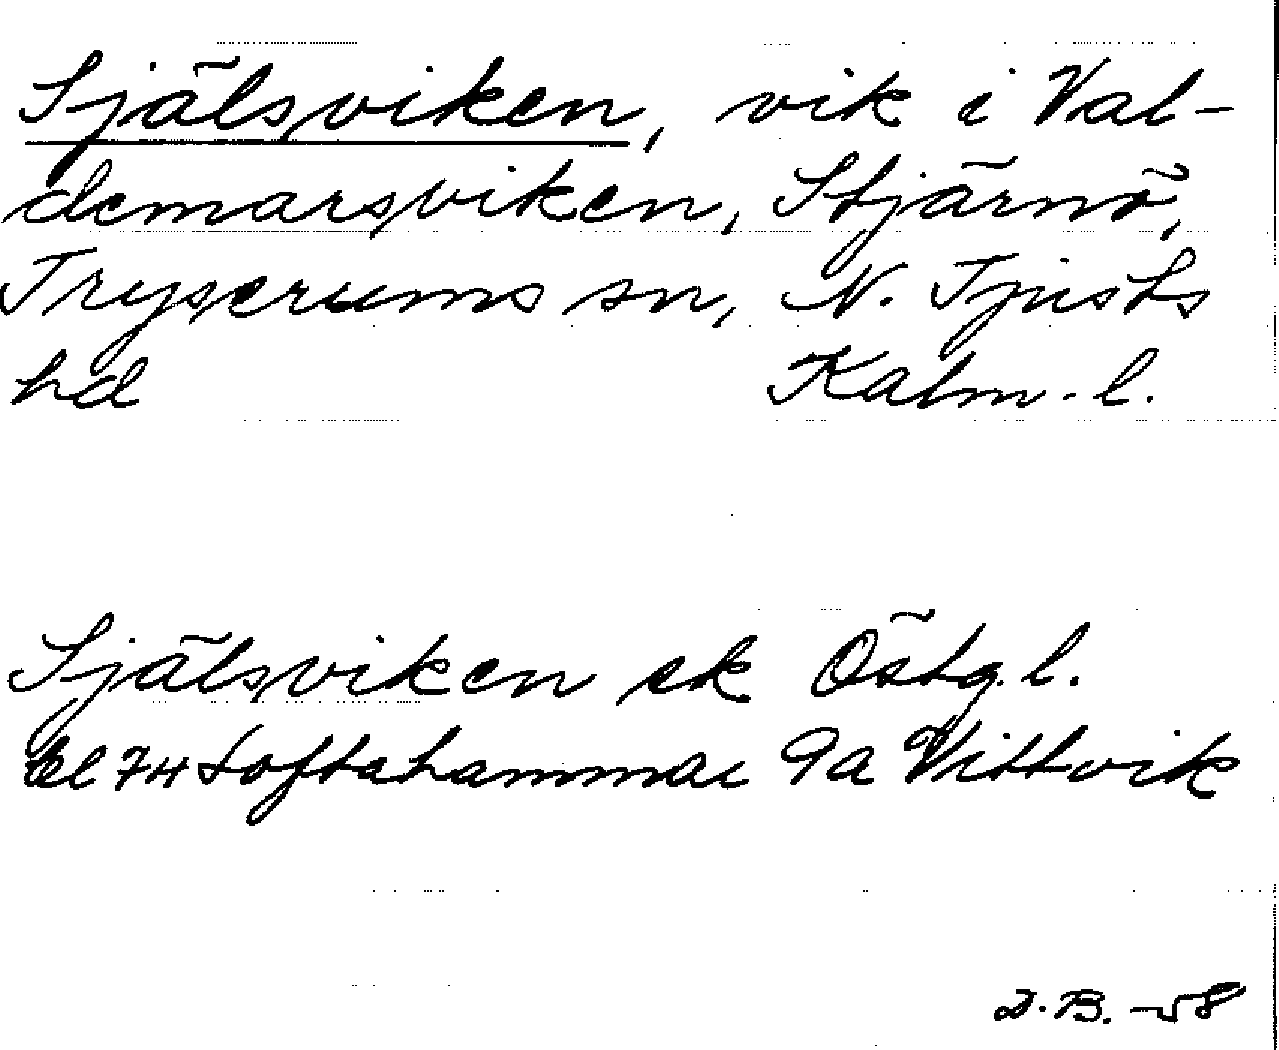 Själsviken, vik i Val-
demarsviken, Stjärnö,
Tryserums sn, N. Tjusts
hd Kalm. l.
Själsviken ek Östg. l.
bl 74 Loftahammar 9a Vittvik
D.B. -58